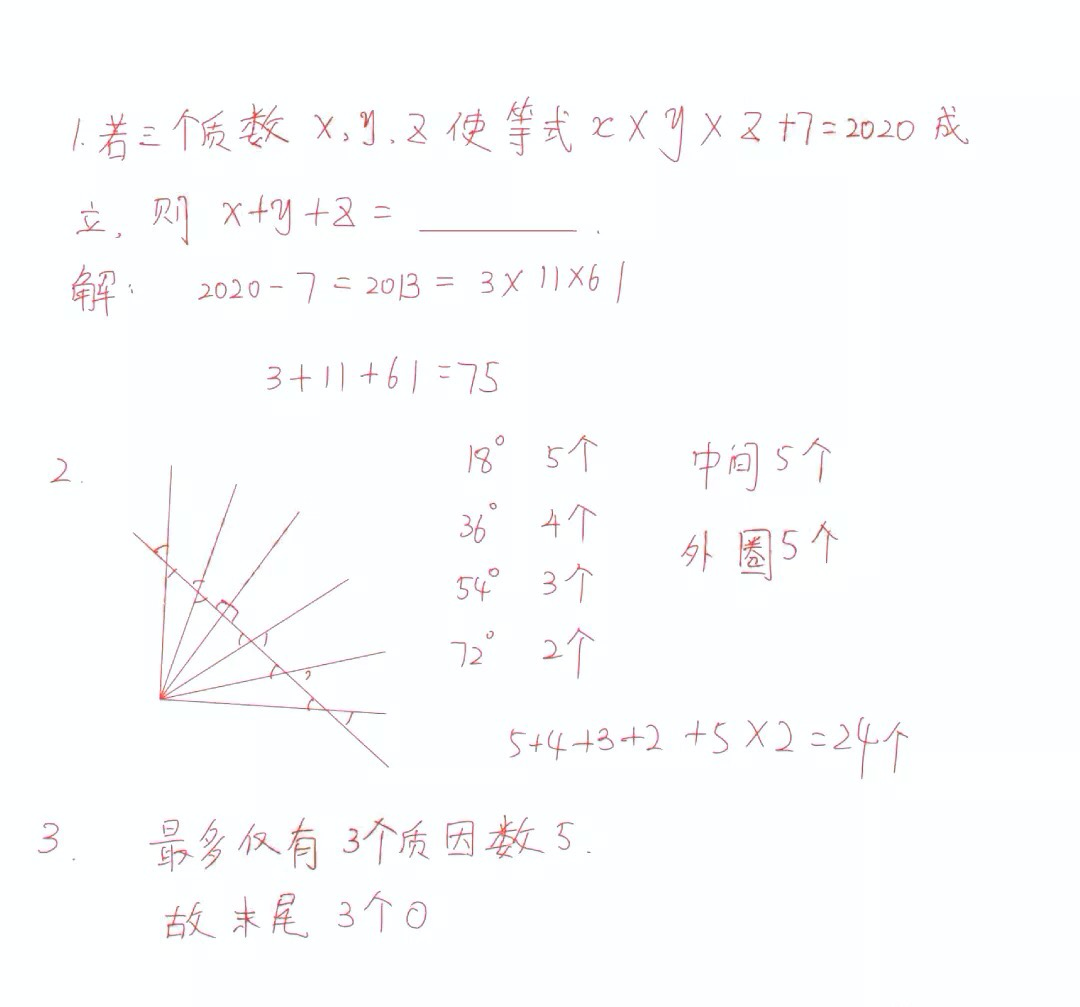 1.若三个质数 x,y,z 使等式 x×y×z+7=2020 成
立,则 x+y+z= ______ .
解: 2020-7=2013=3×11×61
3+11+61=75
2.
18° 5个 中间5个
36° 4个 外圈5个
54° 3个
72° 2个
5+4+3+2+5×2=24个
3. 最多仅有3个质因数5.
故末尾3个0